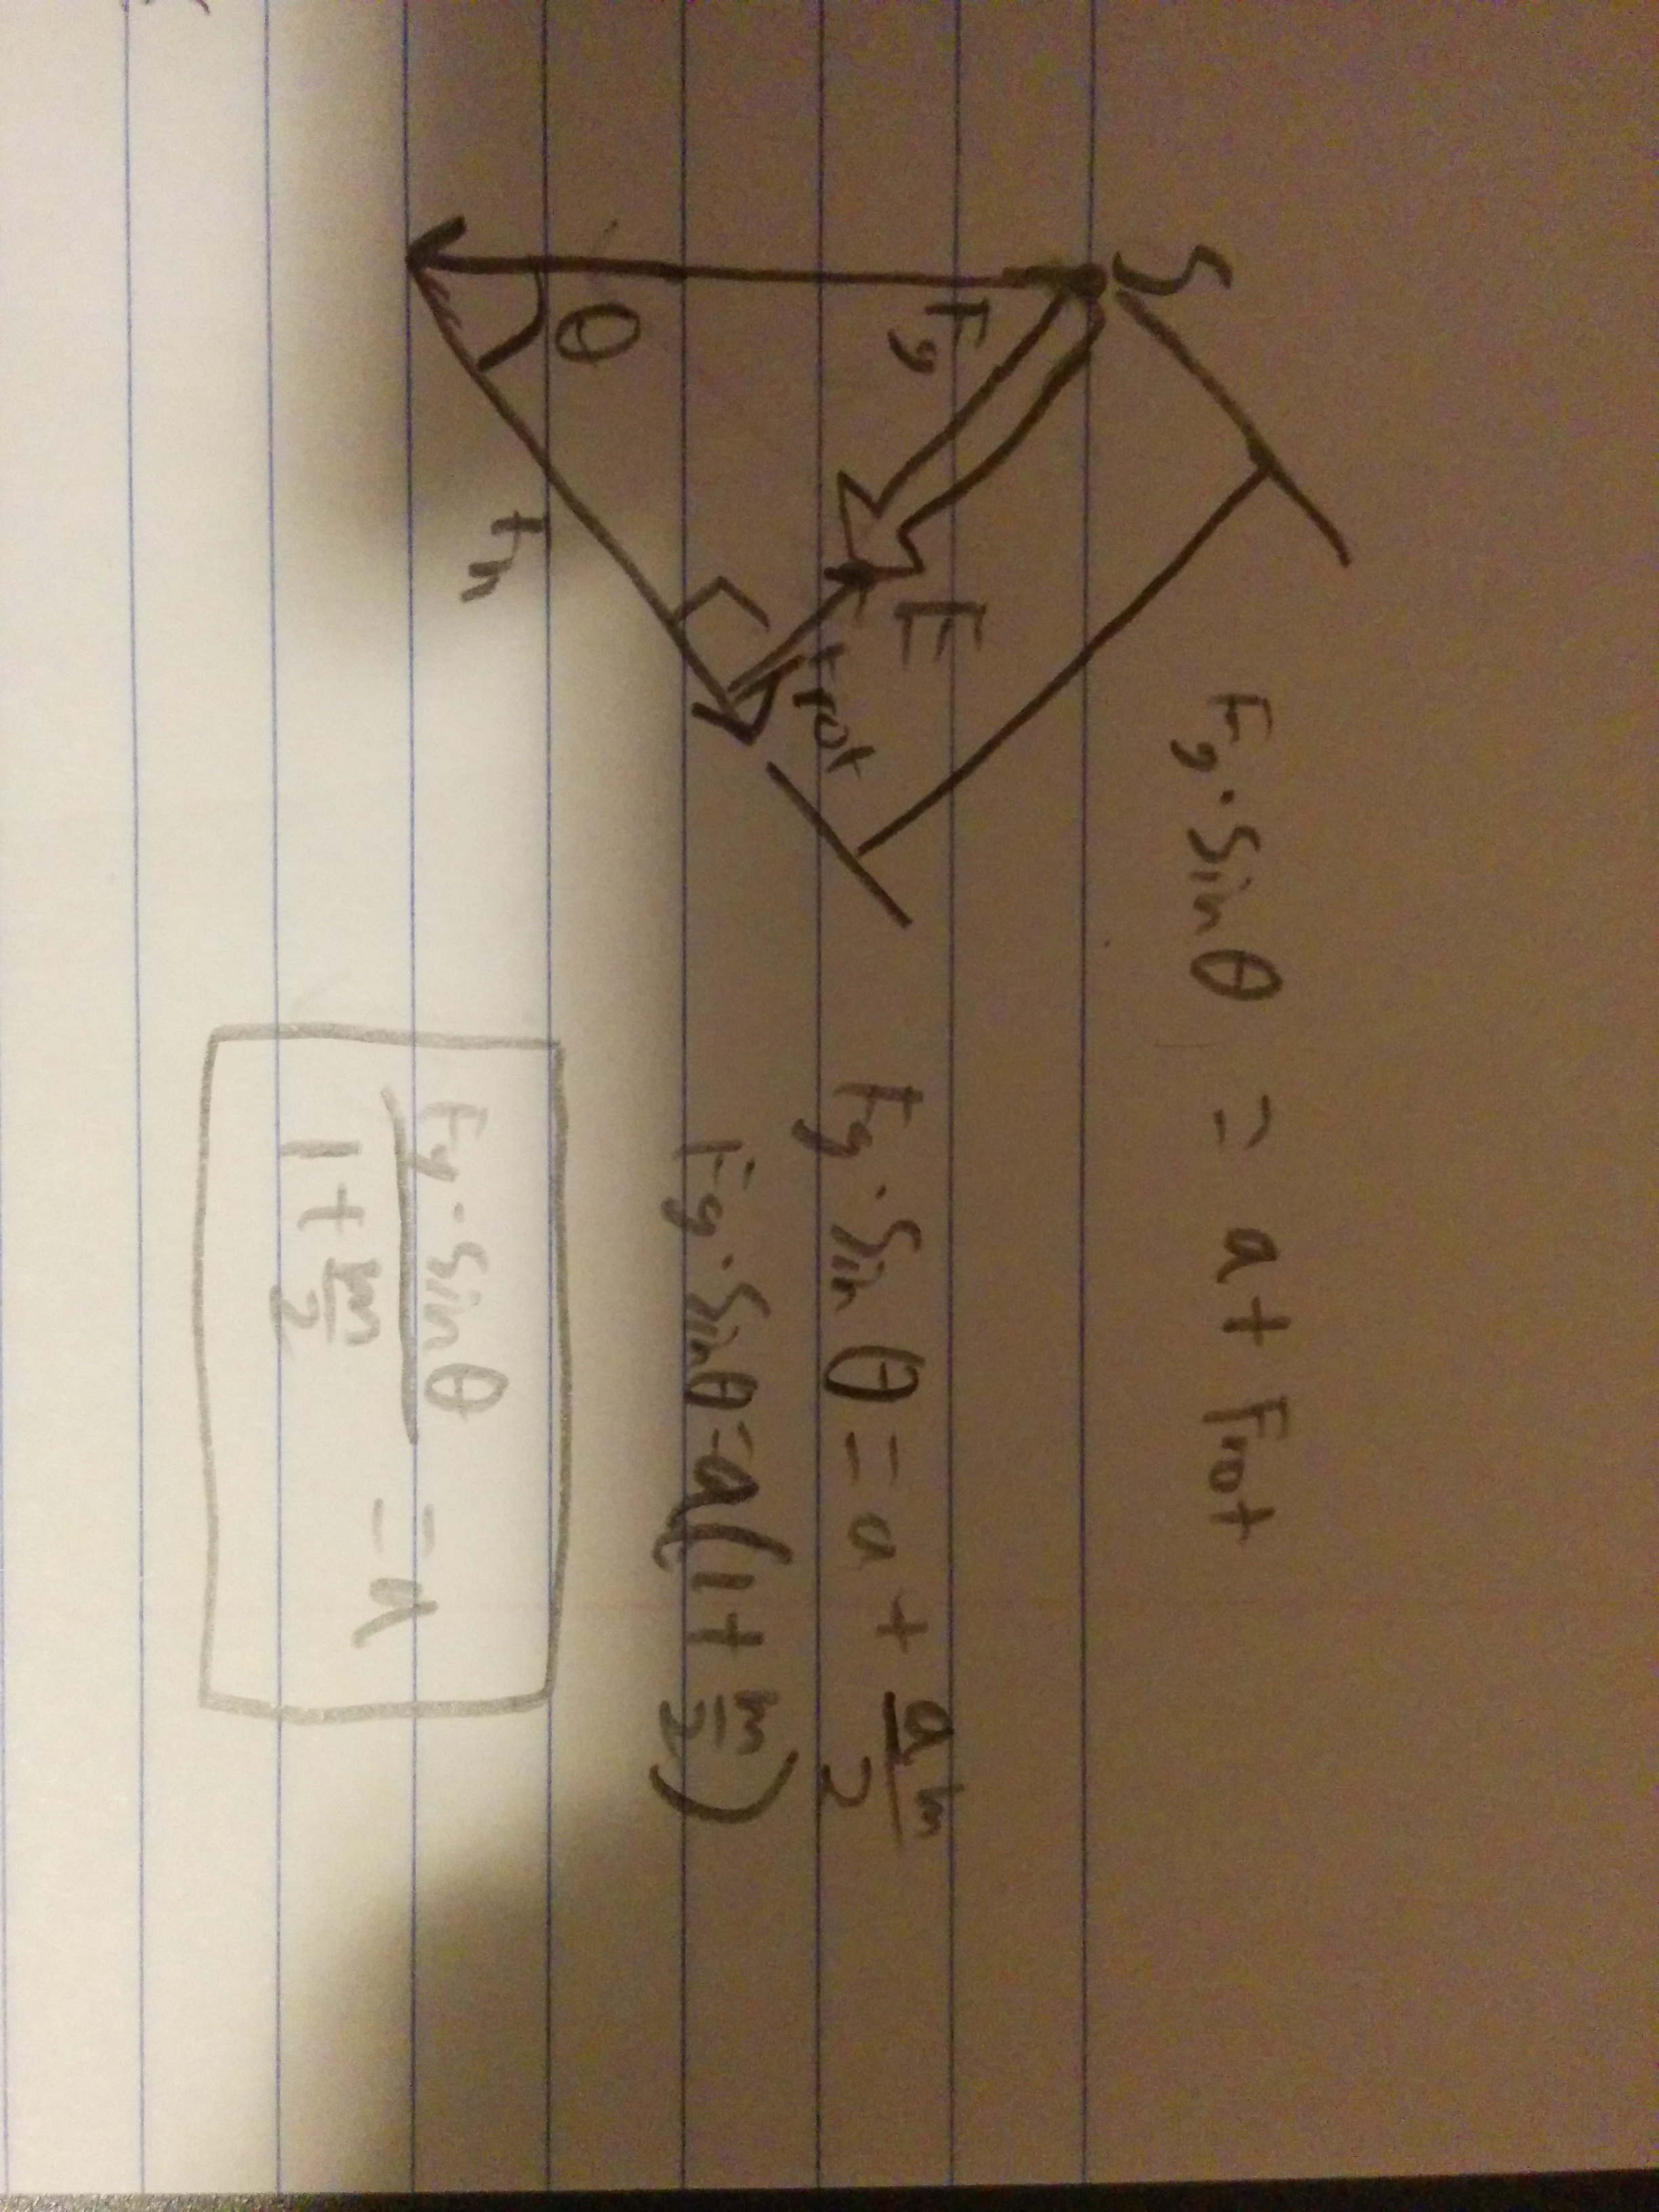 S
Fg
E
Frot
θ
Fn
Fg · Sin θ = a + Frot
Fg · Sin θ = a + am/2
Fg · Sin θ = a(1 + m/2)
Fg · Sin θ / 1 + m/2 = a